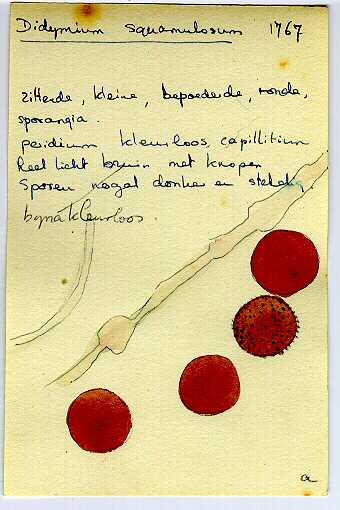 Didymium squamulosum 1767
zittende, kleine, bepoederde, ronde,
sporangia.
peridium kleurloos, capillitium
heel licht bruin met knopen
Sporen nogal donker en stekelig
bijna kleurloos.
a